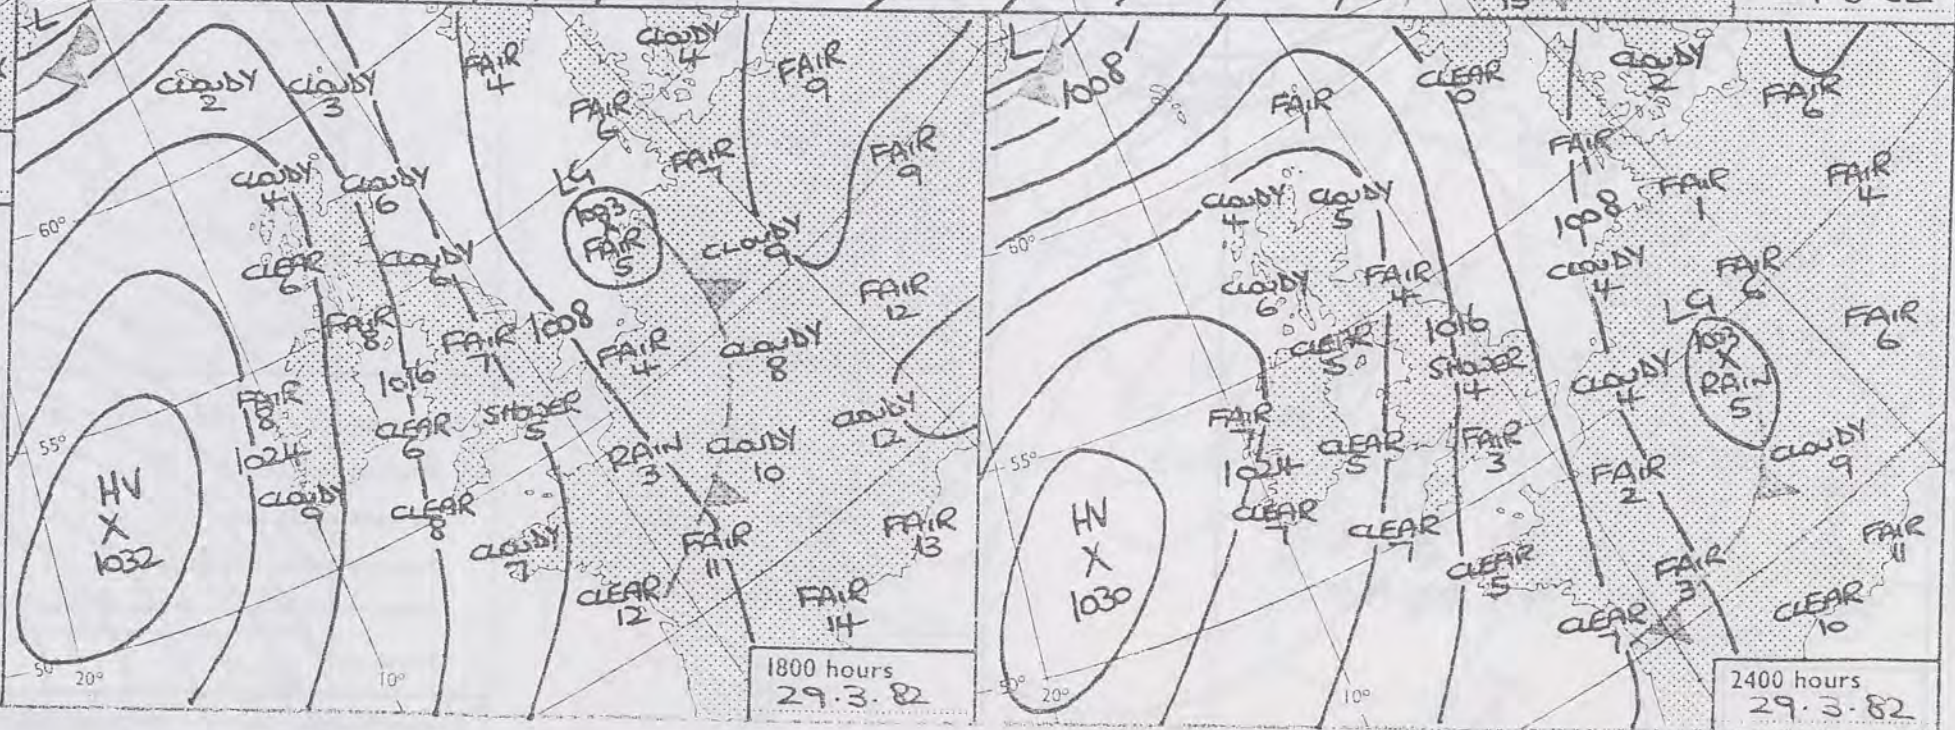 L
CLOUDY
2
CLOUDY
3
FAIR
4
CLOUDY
4
FAIR
9
FAIR
6
FAIR
7
FAIR
9
CLOUDY
4
CLOUDY
6
LG
1003
X
FAIR
5
CLOUDY
9
60°
CLEAR
6
CLOUDY
6
FAIR
12
FAIR
8
FAIR
7
1008
FAIR
4
CLOUDY
8
1016
FAIR
8
CLEAR
6
SHOWER
5
CLOUDY
12
55°
1024
RAIN
3
CLOUDY
10
HV
X
1032
CLOUDY
9
CLEAR
8
CLOUDY
7
FAIR
11
FAIR
13
CLEAR
12
FAIR
14
50°
20°
10°
1800 hours
29.3.82
L
1008
FAIR
1
CLEAR
0
CLOUDY
2
FAIR
6
FAIR
1
FAIR
1
FAIR
4
CLOUDY
4
CLOUDY
5
1008
60°
CLOUDY
6
FAIR
4
CLOUDY
4
FAIR
6
LG
1003
X
RAIN
5
FAIR
6
CLEAR
5
1016
SHOWER
4
CLOUDY
4
FAIR
7
CLEAR
5
FAIR
3
CLOUDY
9
55°
1024
FAIR
2
HV
X
1030
CLEAR
7
CLEAR
7
CLEAR
5
FAIR
3
FAIR
11
CLEAR
7
CLEAR
10
50°
20°
10°
2400 hours
29.3.82